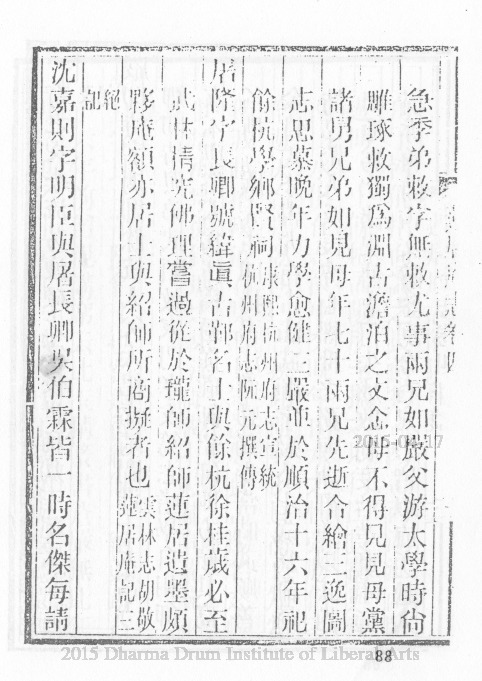 急季弟敕字無敕尤事兩兄如嚴父游太學時尙
雕琢敕獨爲淵古澹泊之文念母不得見見母黨
諸舅兄弟如見母年七十兩兄先逝合繪三逸圖
志思慕晚年力學愈健三嚴並於順治十六年祀
餘杭學鄉賢祠康熙杭州府志宣統
杭州府志阮元撰傳
屠隆字長卿號緯眞古鄞名士與餘杭徐桂歲必至
武林情究佛理嘗過從於瓏師紹師蓮居遺墨頗
夥庵額亦居士與紹師所商擬者也雲林志胡敬
蓮居庵記三
絕
記
沈嘉則字明臣與屠長卿吳伯霖皆一時名傑每請
2015-04-17
88
2015 Dharma Drum Institute of Liberal Arts